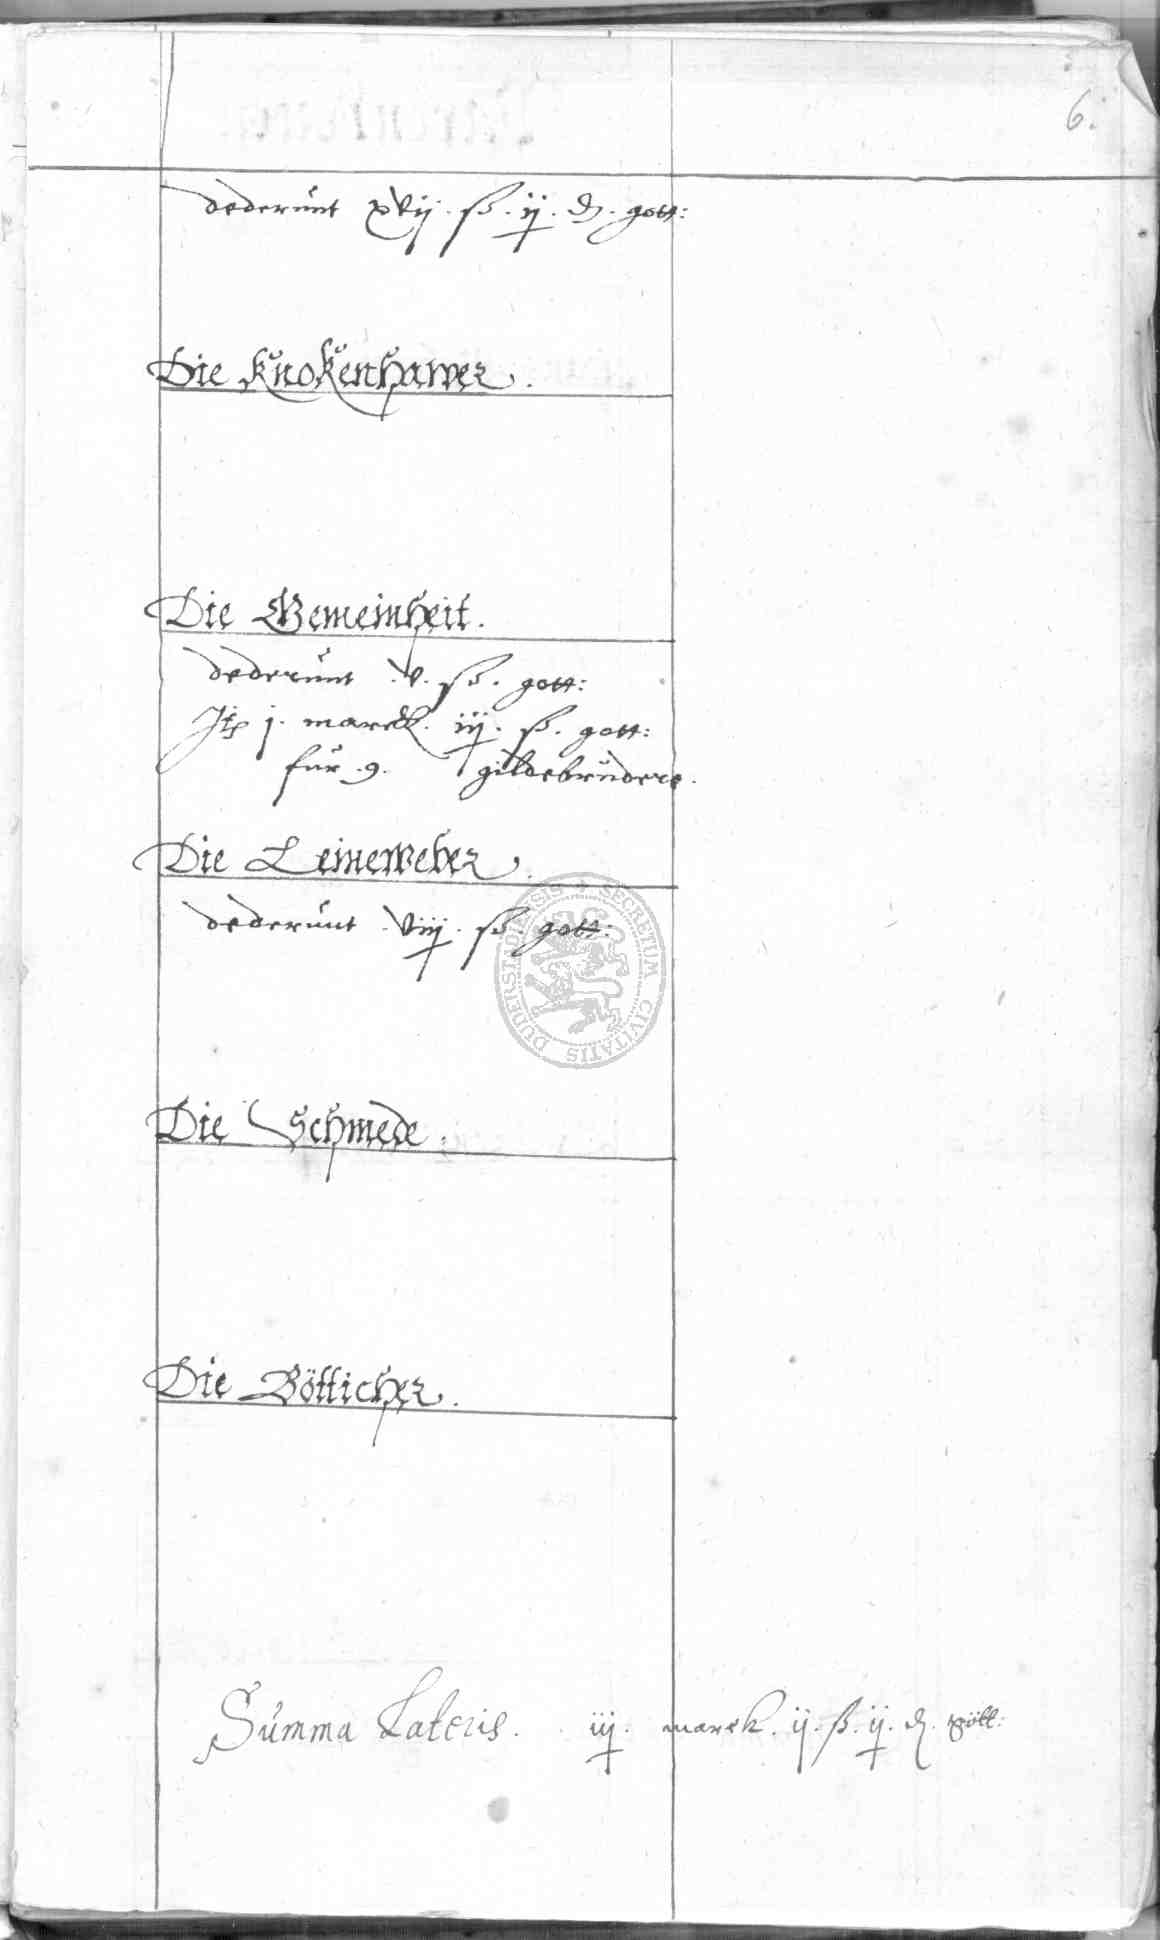 6.
dederunt xvij. ß. ij. ₰. gott:
Die Knokenhawer.
Die Gemeinheit.
dederunt .v. ß. gott:
Jtem j. marck. iij. ß. gott:
für .9. gildebrudere.
Die Leineweber.
dederunt .viij. ß. gott:
SECRETUM CIVITATIS DUDERSTADIENSIS
Die Schmede.
Die Bötticher.
Summa Lateris. iij. marck. ij. ß. ij. ₰. gött: